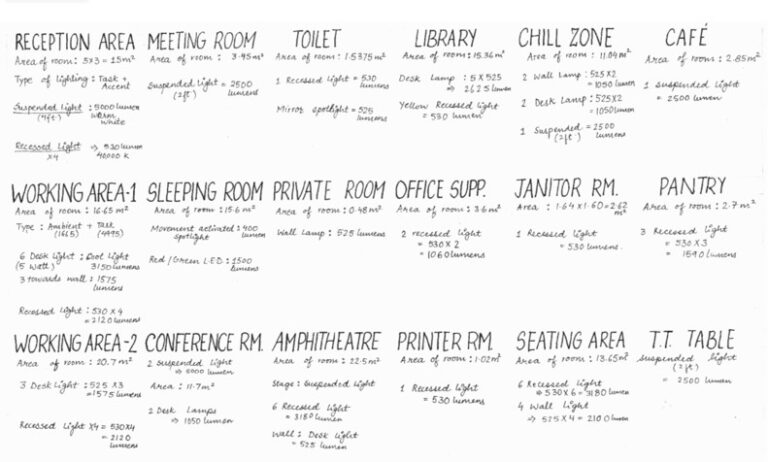 RECEPTION AREA
Area of room: 5x3 = 15m²
Type of lighting: Task + Accent
Suspended light : 5000 lumen
(4ft) warm white
Recessed light ⇒ 530 lumen
x4 40000 K
MEETING ROOM
Area of room : 3.45m²
Suspended light = 2500
(2ft) lumens
TOILET
Area of room : 1.5375m²
1 Recessed light = 530
lumens
Mirror spotlight = 525
lumens
LIBRARY
Area of room : 15.36m²
Desk Lamp : 5 x 525
⇒ 2625 lumens
Yellow Recessed light
= 530 lumen
CHILL ZONE
Area of room : 11.04m²
2 Wall Lamp : 525 x 2
= 1050 lumen
2 Desk Lamp : 525 x 2
= 1050 lumen
1 Suspended = 2500
(2ft) lumens
CAFÉ
Area of room : 2.85m²
1 Suspended light
= 2500 lumen
WORKING AREA-1
Area of room : 16.65m²
Type : Ambient + Task
(1665) (4995)
6 Desk light :
(5 Watt) 3150 lumens
3 towards wall : 1575
lumens
Recessed light : 530 x 4
= 2120 lumens
SLEEPING ROOM
Area of room : 15.6m²
Movement activated : 400
spotlight lumen
Red/Green LED : 1500
lumens
PRIVATE ROOM
Area of room : 0.48m²
Wall Lamp : 525 lumens
OFFICE SUPP.
Area of room : 3.6m²
2 recessed light
= 530 x 2
= 1060 lumens
JANITOR RM.
Area : 1.64 x 1.60 = 2.62
m²
1 Recessed light
= 530 lumens.
PANTRY
Area of room : 2.7m²
3 Recessed light
= 530 x 3
= 1590 lumens
WORKING AREA-2
Area of room : 20.7m²
3 Desk light : 525 x 3
= 1575 lumens
Recessed light x4 = 530x4
= 2120
lumens
CONFERENCE RM.
2 Suspended light
⇒ 5000 lumens
Area : 11.7m²
2 Desk Lamps
⇒ 1050 lumen
AMPHITHEATRE
Area of room : 22.5m²
Stage : Suspended light
6 Recessed light
= 3180 lumens
Wall : Desk light
= 525 lumen
PRINTER RM.
Area of room : 1.02m²
1 Recessed light
= 530 lumens
SEATING AREA
Area of room : 13.65m²
6 Recessed light
⇒ 530 x 6 = 3180 lumens
4 Wall light
⇒ 525 x 4 = 2100 lumen
T.T. TABLE
Suspended light
(2ft)
= 2500 lumen